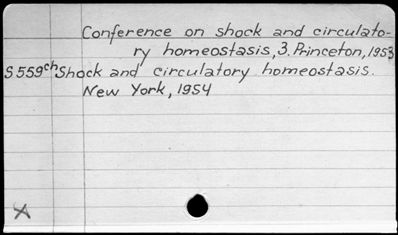 Conference on shock and circulato-
ry homeostasis, 3. Princeton, 1953
S559ch Shock and circulatory homeostasis.
New York, 1954